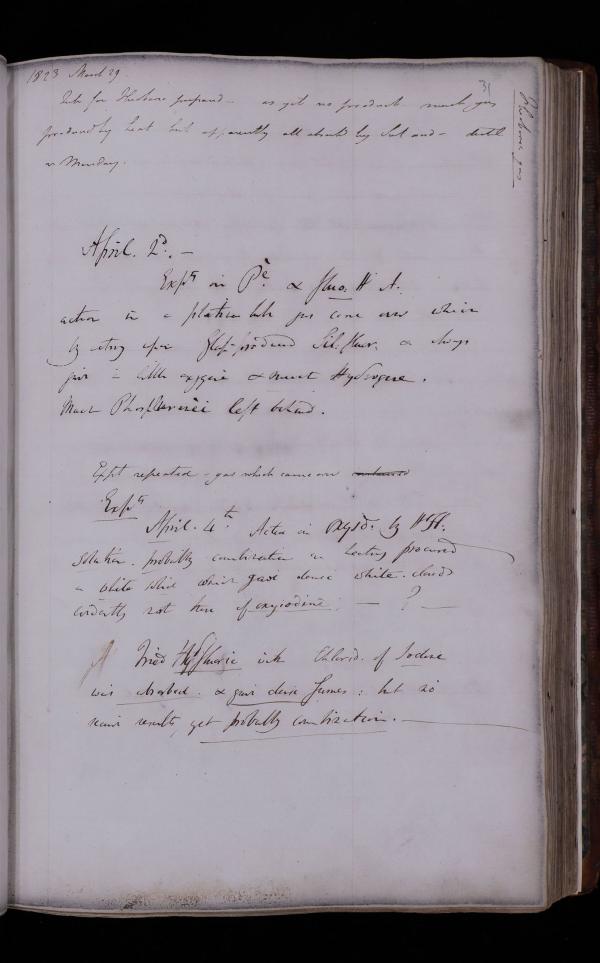 1823 March 29.
31
Tube for Fluoborine prepared – as yet no product much gas
produced by heat but apparently all absorbd by Salt and – until
on Monday.
Fluoborine gas
April. 2d. –
Expts on Pe. & fluo. H A.
action in a platina tube gas came over which
by acting upon glass produced Sil. fluor. & always
gave a little oxygene & much Hydrogene.
Much left behind.
Expt repeated – gas which came over
Expts
April. 4th Action on oxyid. by HFl.
solution. probably combination on heating procured
a white solid which gave dense white. clouds
evidently not those of oxyiodine. – ? –
Tried Hy Fluoric with Chlorid. of Iodine
was absorbed. & gave dense fumes: but no
results, yet probably combination. –